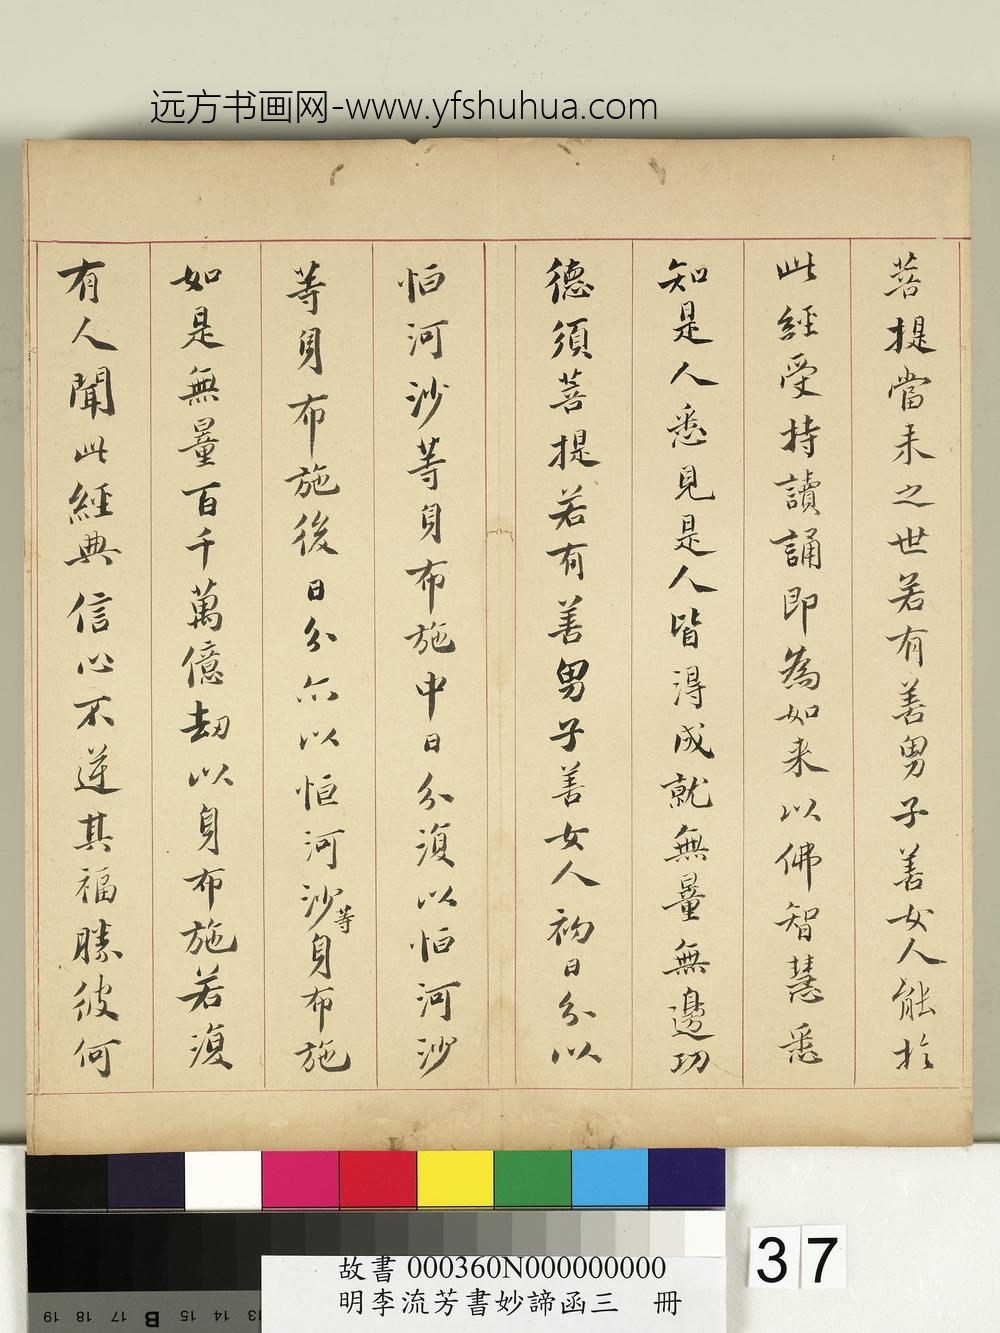 远方书画网-www.yfshuhua.com
菩提當来之世若有善男子善女人能於
此經受持讀誦即為如来以佛智慧悉
知是人悉見是人皆得成就無量無邊功
德須菩提若有善男子善女人初日分以
恒河沙等身布施中日分復以恒河沙
等身布施後日分亦以恒河沙等身布施
如是無量百千萬億劫以身布施若復
有人聞此經典信心不逆其福勝彼何
37
故書 000360N000000000
明李流芳書妙諦函三 冊
19 18 17 B 15 14 13